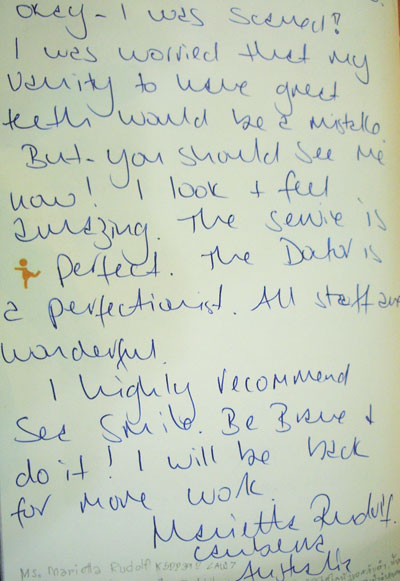 Okay - I was scared?
I was worried that my
vanity to have great
teeth would be a mistake.
But - you should see me
now! I look + feel
amazing. The service is
perfect. The Doctor is
a perfectionist. All staff are
wonderful.
I highly recommend
Sea Smile. Be Brave +
do it! I will be back
for more work.
Marietta Rudolf.
Canberra
Australia
Ms. Marietta Rudolf